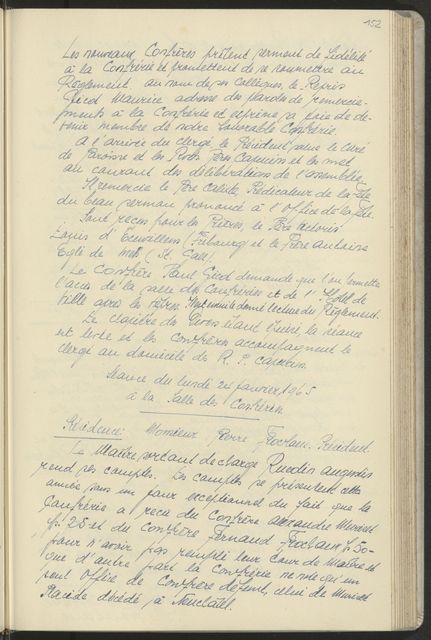 152
Les nouveaux Confrères prêtent serment de fidélité
à la Confrérie et promettent de se soumettre au
Règlement. au nom de ses collègues, le Confrère
Maurice adresse des paroles de remercie-
ments à la Confrérie et exprime sa joie de de-
venir membre de notre honorable Confrérie.
A l'arrivée du clergé, le Président salue le Curé
de Paroisse et les Rvds Pères Capucins et les met
au courant des délibérations de l'assemblée.
Il remercie le Père Calixte, Prédicateur de la Fête
du beau sermon prononcé à l'Office de la Fête.
Sont reçus pour les Prêtres, le Père
Louis d'Ecuvillens (Fribourg) et le Frère Antoine
Egli de (St. Gall).
Le Confrère Paul demande que l'on permette
l'accès de la salle des Confréries et de l'Hôtel de
Ville après les Vêpres. Il est ensuite donné lecture du Règlement.
Le chapitre des étant épuisé la séance
est levée et les Confrères accompagnent le
clergé au domicile des R. P. Capucins.
Séance du lundi 24 janvier 1965
à la Salle des Confréries
Présidence: Monsieur Pierre Président
Le Maître sortant de charge Ruedin Augustin
rend ses comptes. Les comptes se présentent cette
année sous un jour exceptionnel du fait que la
Confrérie a reçu du Confrère Alexandre
fr. 25 et du Confrère Fernand fr. 50-
pour n'avoir pas rempli leur tour de Maître et
que d'autre part la Confrérie ne note qu'un
seul Office de Confrère défunt, celui de
Placide décédé à Neuchâtel.